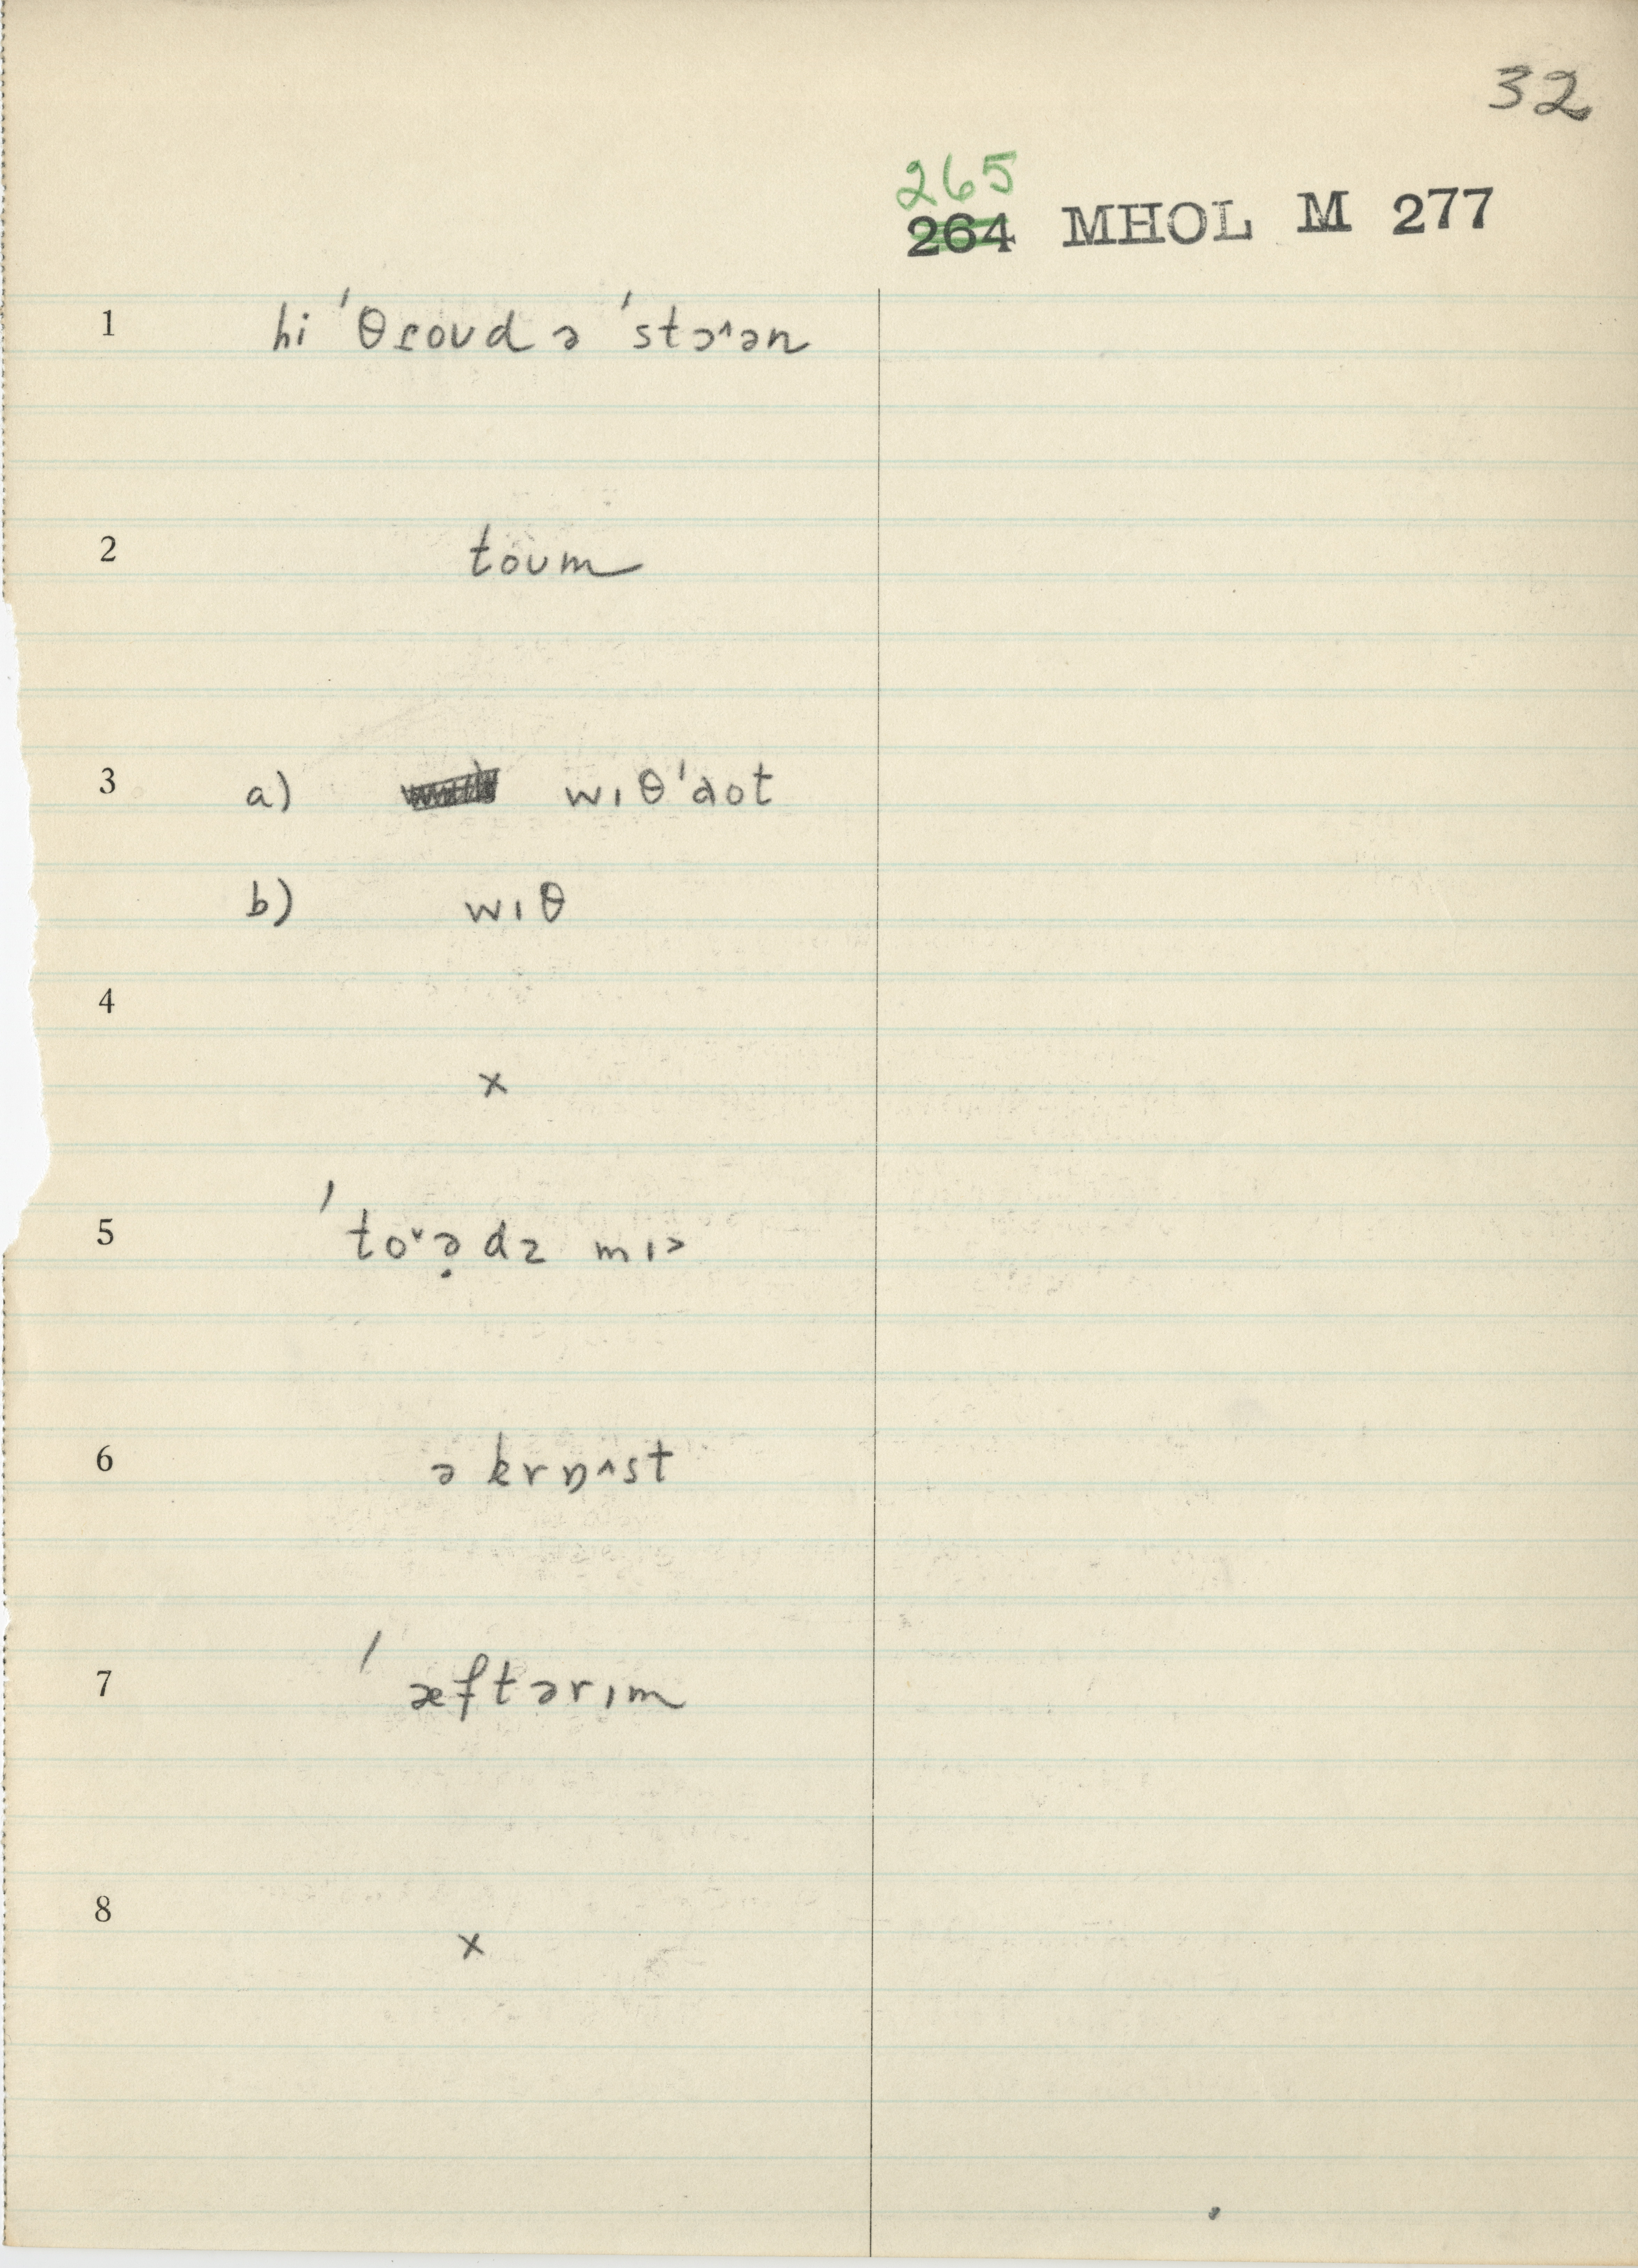 32
265
264 MHOL M 277
1 hi 'θɾoʊd ə 'stɔ˄ən
2 toʊm
3 a) wɪθ'aʊt
b) wɪθ
4 x
5 'to˅ə̣dz mɪ>
6 ə krɒ˄st
7 'æftərɪm
8 x